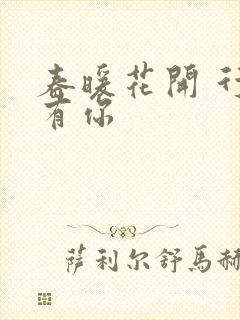 春暖花開 行
有你
萨利尔舒馬赫